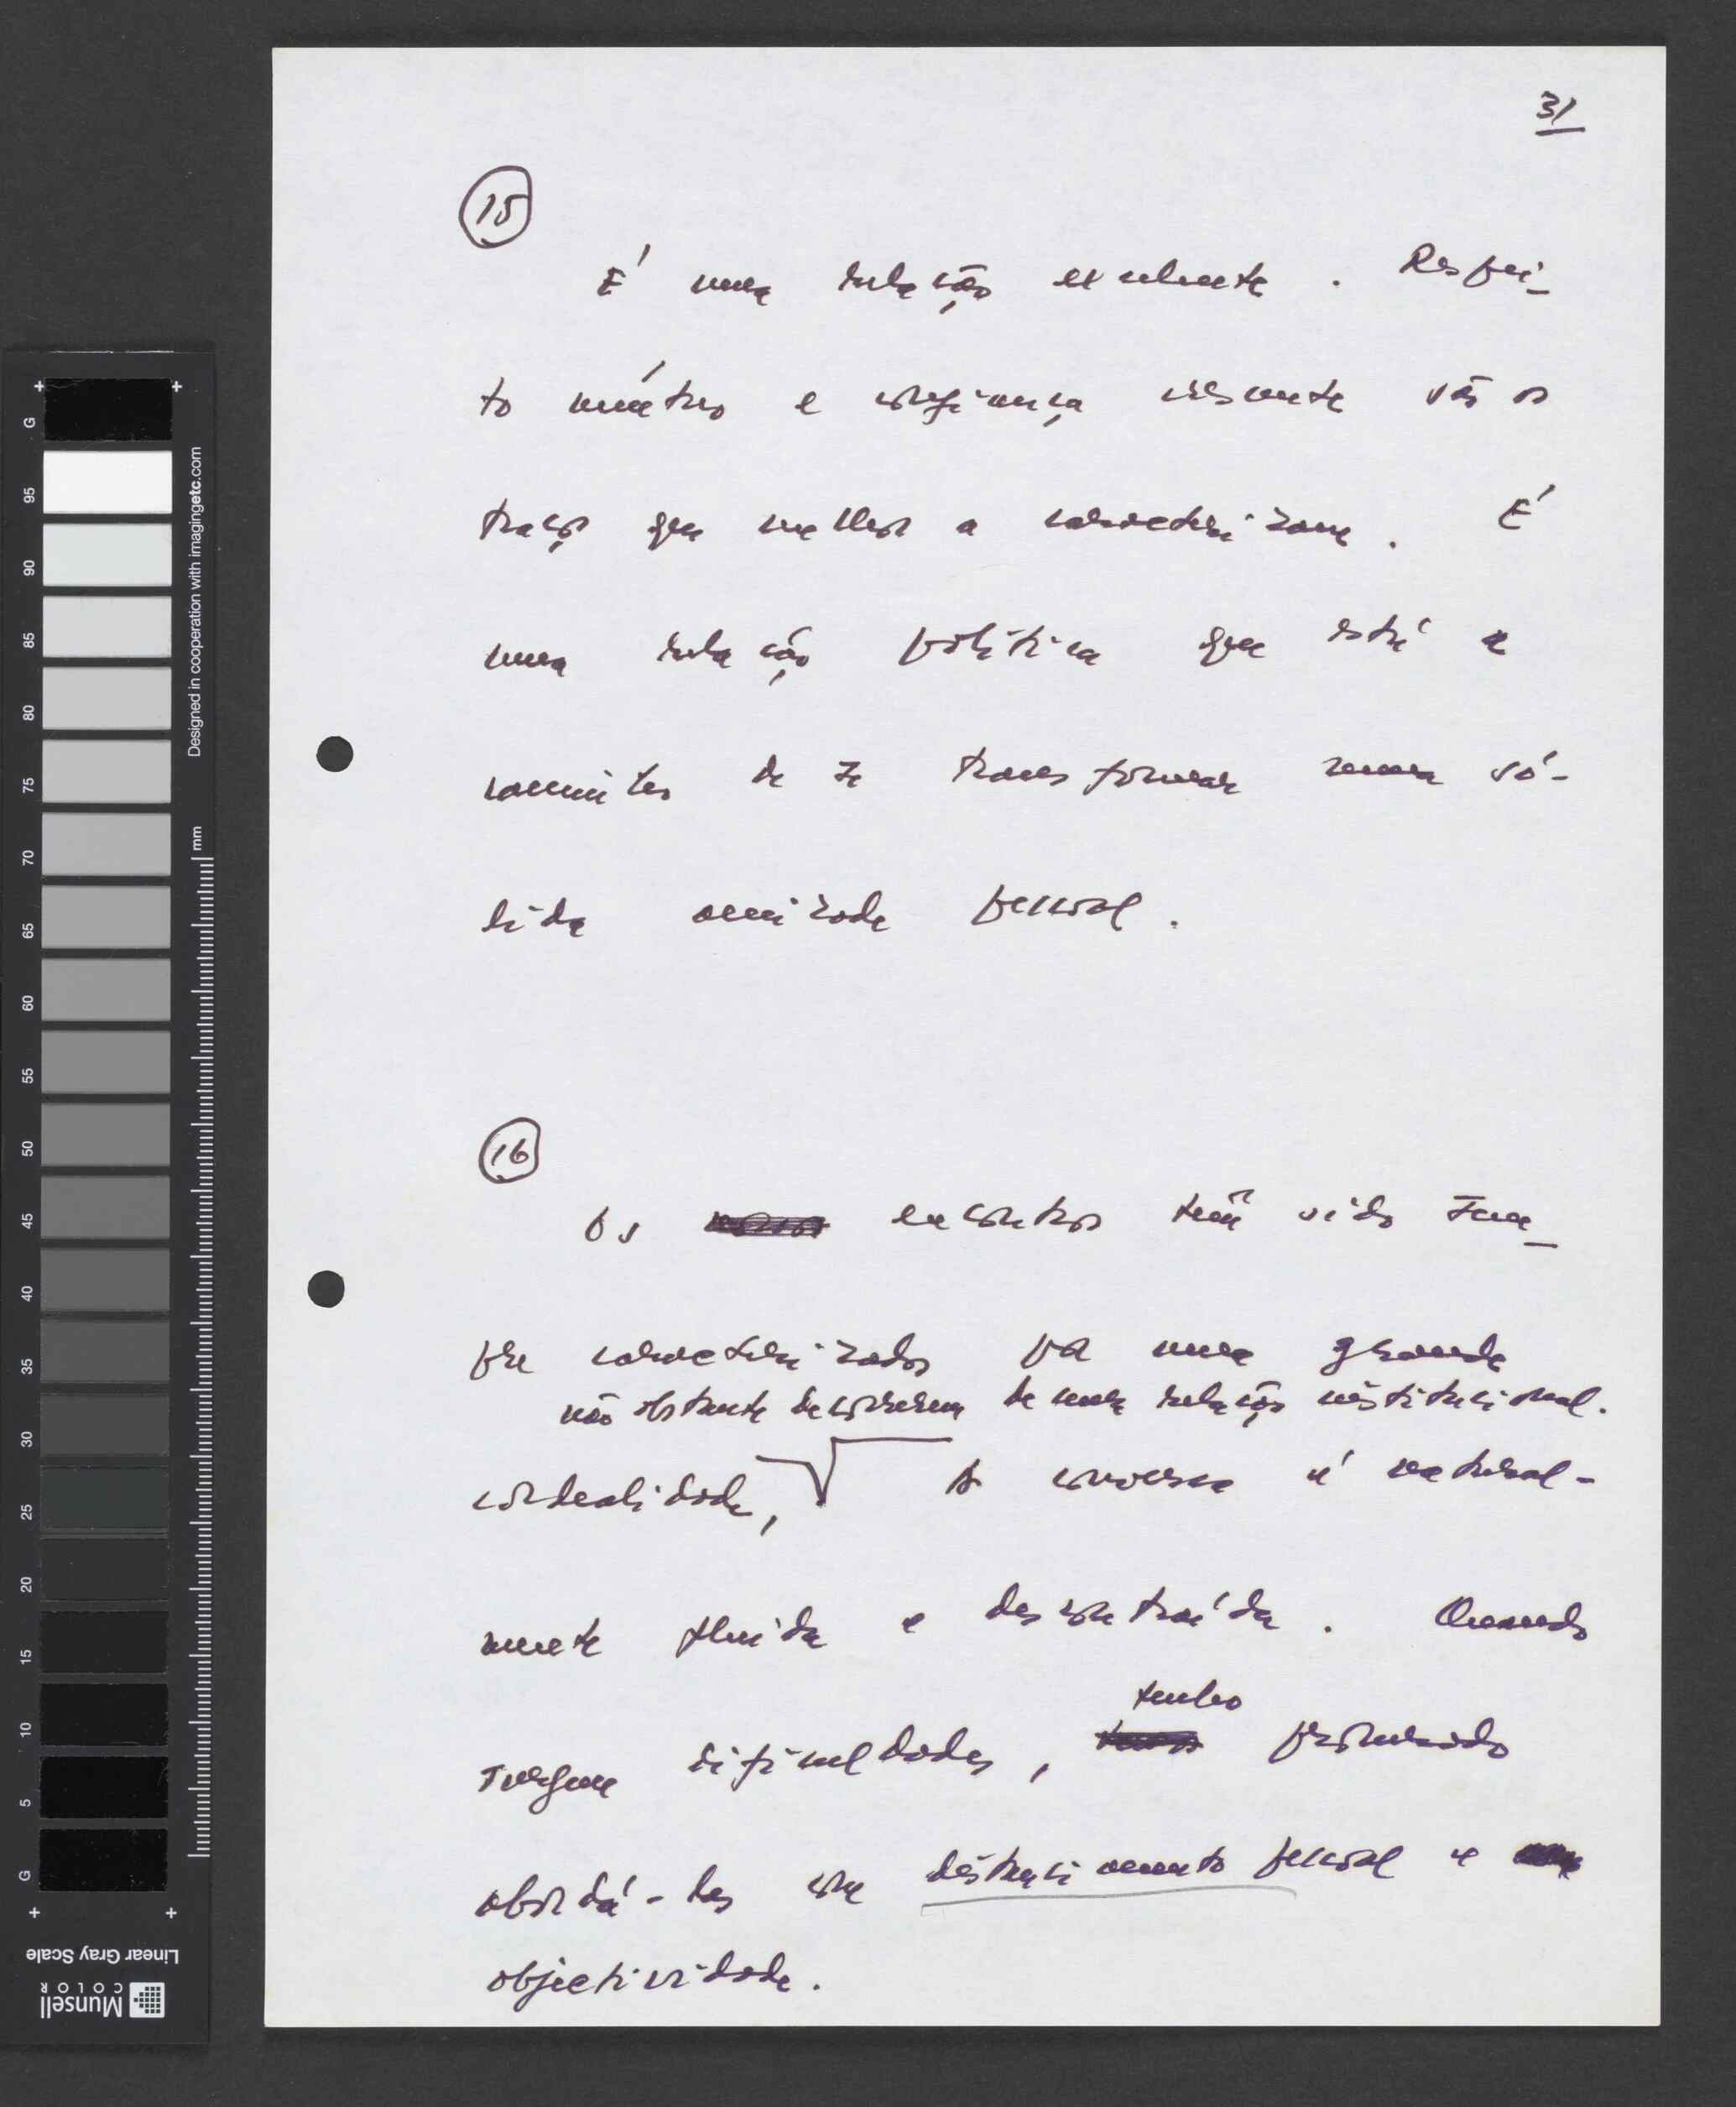 31
15
É uma relação excelente. Respei-
to mútuo e confiança crescente são os
traços que melhor a caracterizam. É
uma relação política que está a
caminho de se transformar numa só-
lida amizade pessoal.
16
Os encontros têm sido sem-
pre caracterizados por uma grande
não obstante decorrerem de uma relação institucional.
cordealidade, A conversa é natural-
mente fluida e descontraída. Quando
surgem dificuldades, tenho procurado
abordá-las com distanciamento pessoal e
objectividade.
G 95 90 85 80 75 70 65 60 55 50 45 40 35 30 25 20 15 10 5 G
mm
Designed in cooperation with imagingetc.com
Linear Gray Scale
Munsell
COLOR